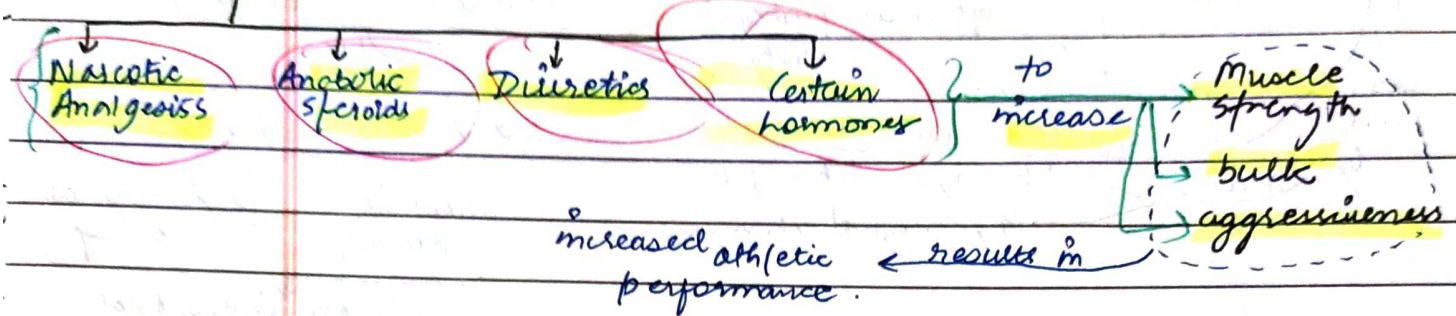 Narcotic
Analgesiss
Anabolic
steroids
Diuretics
Certain
hormones
to
increase
Muscle
strength
bulk
aggressiveness
results in
increased athletic
performance.